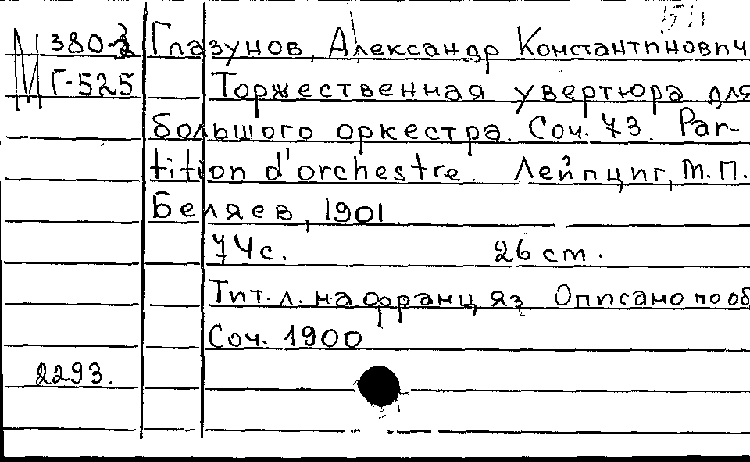 М 380-2 Глазунов, Александр Константинович
Г-525 Торжественная увертюра для
большого оркестра. Соч. 73. Par-
tition d'orchestre. Лейпциг, М.П.
Беляев, 1901
74с. 26 cm.
Тит. л. на франц. яз Описано по об
Соч. 1900
2293.